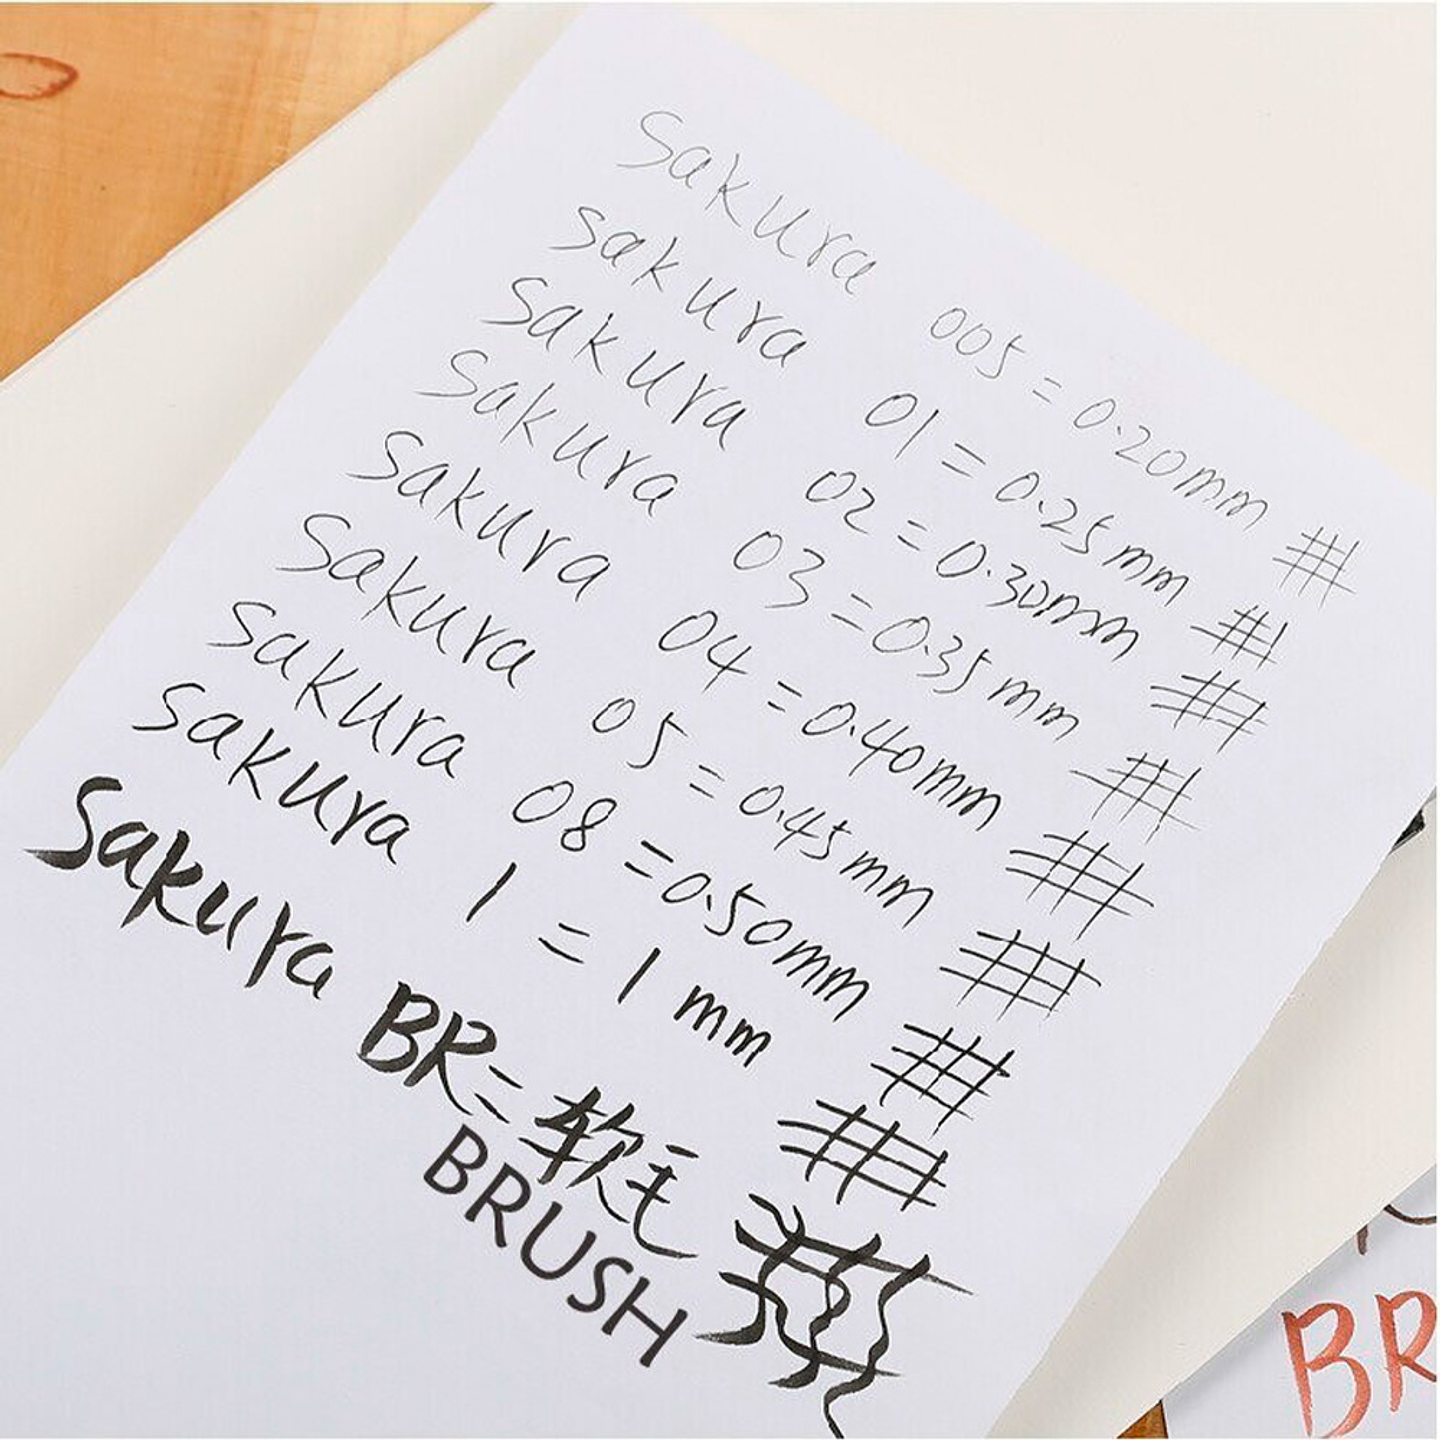 Sakura 005 = 0.20mm
sakura 01 = 0.25mm
sakura 02 = 0.30mm
sakura 03 = 0.35mm
sakura 04 = 0.40mm
sakura 05 = 0.45mm
sakura 08 = 0.50mm
sakura 1 = 1 mm
Sakura BR = 软毛
BRUSH
BR